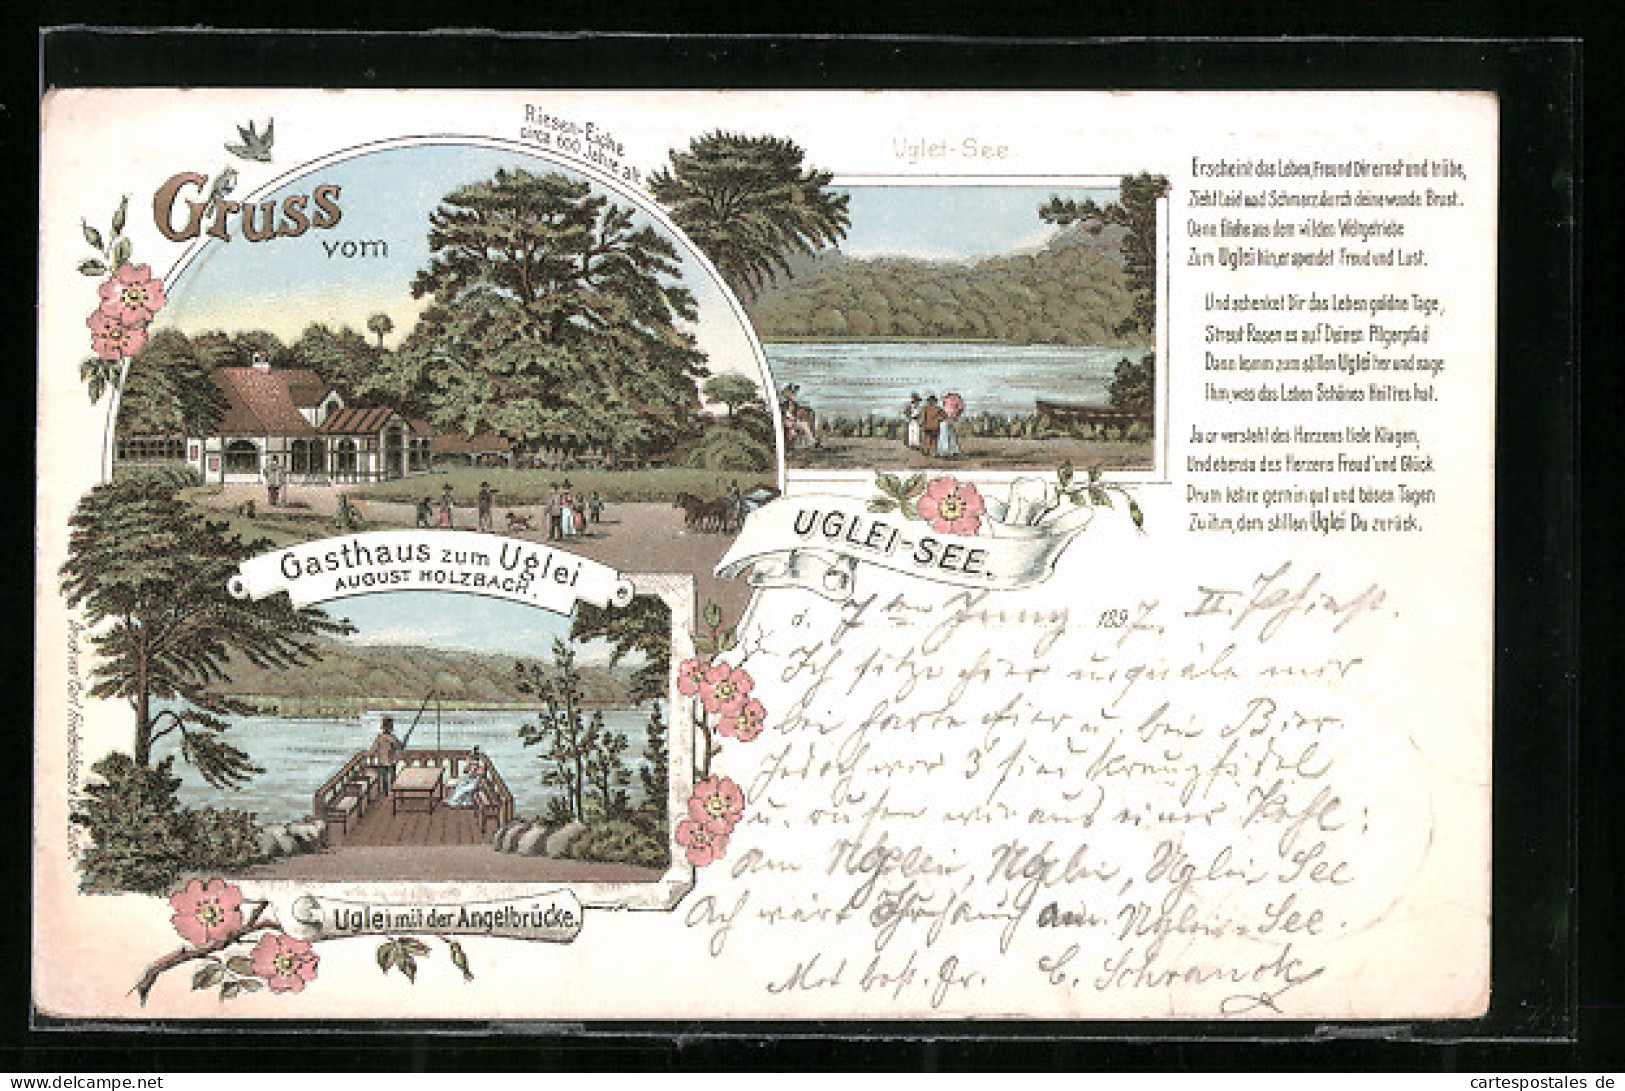 Gruss
vom
Riesen-Eiche
circa 600 Jahre alt
Uglei-See.
Erscheint das Leben, Freund Dir ernst und trübe,
Zieht Leid und Schmerz, durch deine wunde Brust.
Dann fliehe aus dem wilden Weltgetriebe
Zum Uglei hin, er spendet Freud und Lust.
Und schenket Dir das Leben goldne Tage,
Streut Rosen es auf Deinen Pilgerpfad
Dann komm zum stillen Uglei her und sage
Ihm, was das Leben Schönes Heitres hat.
Ja er versteht des Herzens tiefe Klagen,
Und ebenso des Herzens Freud' und Glück
Drum kehre gern in gut und bösen Tagen
Zu ihm, dem stillen Uglei Du zurück.
UGLEI-SEE.
Gasthaus zum Uglei
AUGUST HOLZBACH.
Uglei mit der Angelbrücke.
d. 7ten Juny 1897.
Ich sitze hier u. quäle mir
bei harte Eier u. bei Bier.
Jedoch wir 3 sind kreuzfidel
u. rufen wir aus einer Kehl:
Am Uglei, Uglei, Uglei See
Ach wärst Du auch am Uglei-See.
Mit best. Gr. C. Schranck
cartespostales de